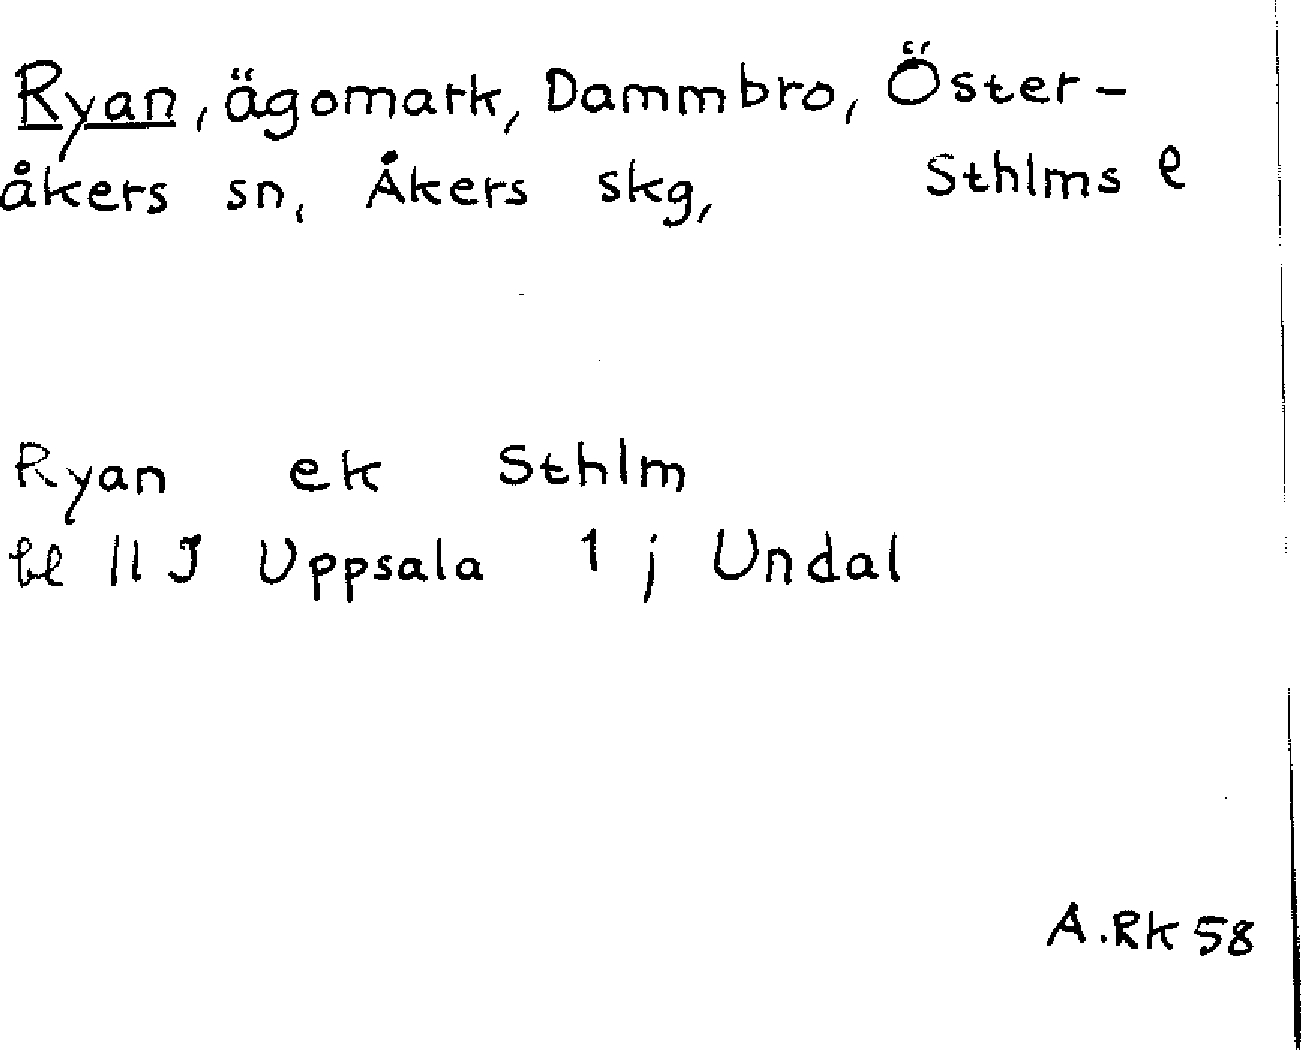 Ryan, ägomark, Dammbro, Öster-
åkers sn, Åkers skg, Sthlms l
Ryan ek Sthlm
bl 11 J Uppsala 1 j Undal
A.RK 58